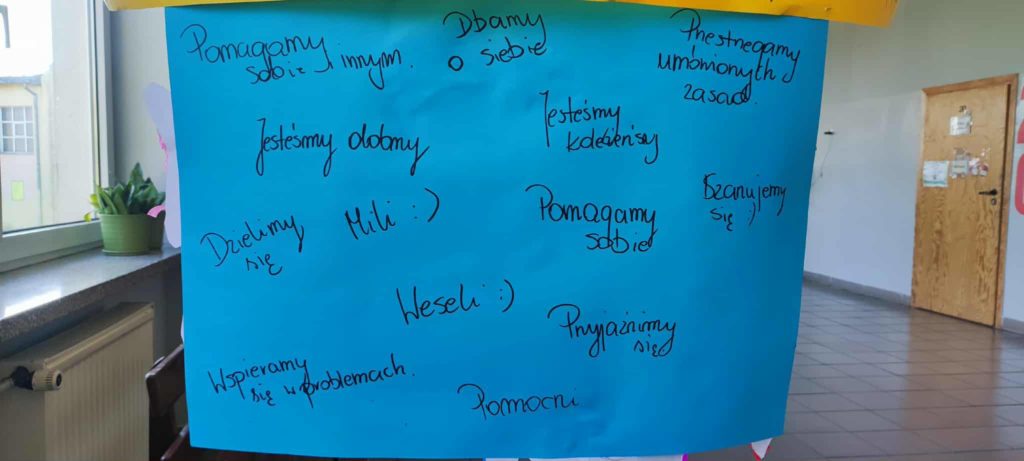 Pomagamy
sobie i innym.
Dbamy
o siebie
Przestrzegamy
umówionych
zasad.
Jesteśmy dobrzy
Jesteśmy
koleżeńscy
Dzielimy
się
Mili :)
Pomagamy
sobie
Szanujemy
się :)
Weseli :)
Przyjaźnimy
się
Wspieramy
się w problemach.
Pomocni